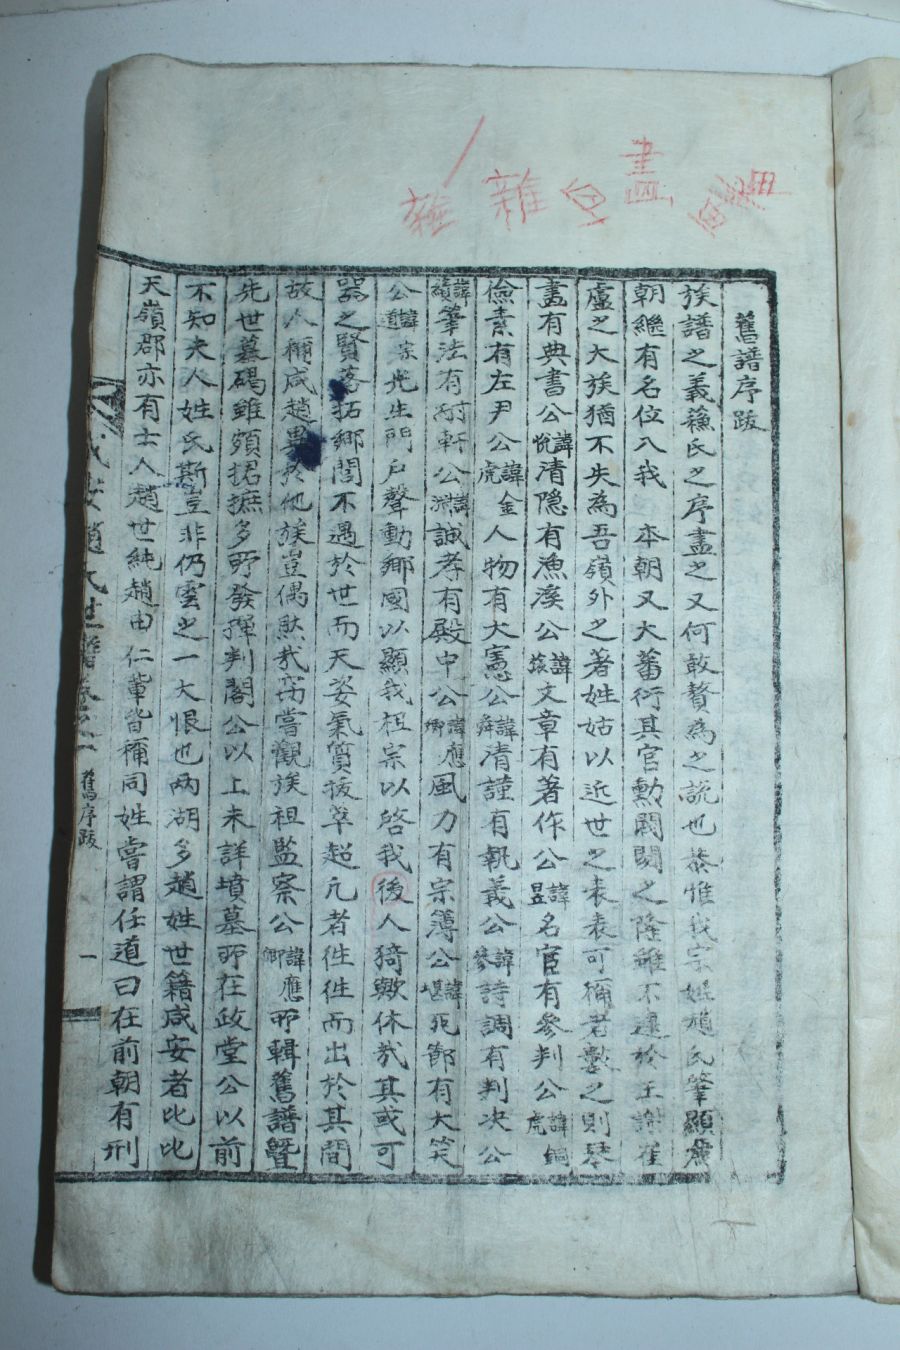 舊譜序跋
族譜之義蘓氏之序盡之又何敢贅爲之說也恭惟我宗姓趙氏筆顯麗
朝繼有名位入我　本朝又大蕃衍其官勳閥閱之隆雖不逮於王謝崔
盧之大族猶不失為吾嶺外之著姓姑以近世之表表可稱者數之則琴
畫有典書公諱悅淸隱有漁溪公諱文章有著作公諱昱名官有參判公諱銅虎
儉素有左尹公諱金虎人物有大憲公諱舜淸謹有執義公諱參詩調有判决公
諱績筆法有軒公諱淵誠孝有殿中公諱應卿風力有宗簿公諱堪死節有大笑
公諱先生門戶聲動鄕國以顯我祖宗以啓我後人猗歟休哉其或可
器之賢落拓鄕閭不遇於世而天姿氣質拔萃超凡者徃徃而出於其間
故人稱咸趙異於他族豈偶然哉嘗觀族祖監察公諱應卿所輯舊譜曁
先世墓碣雖頗捃摭多所發揮判閣公以上未詳墳墓所在政堂公以前
不知夫人姓氏斯豈非仍雲之一大恨也兩湖多趙姓世籍咸安者比比
天嶺郡亦有士人趙世純趙由仁輩皆稱同姓嘗謂任道曰在前朝有刑
咸安趙氏世譜卷之一　舊序跋　一
雜 自 畫